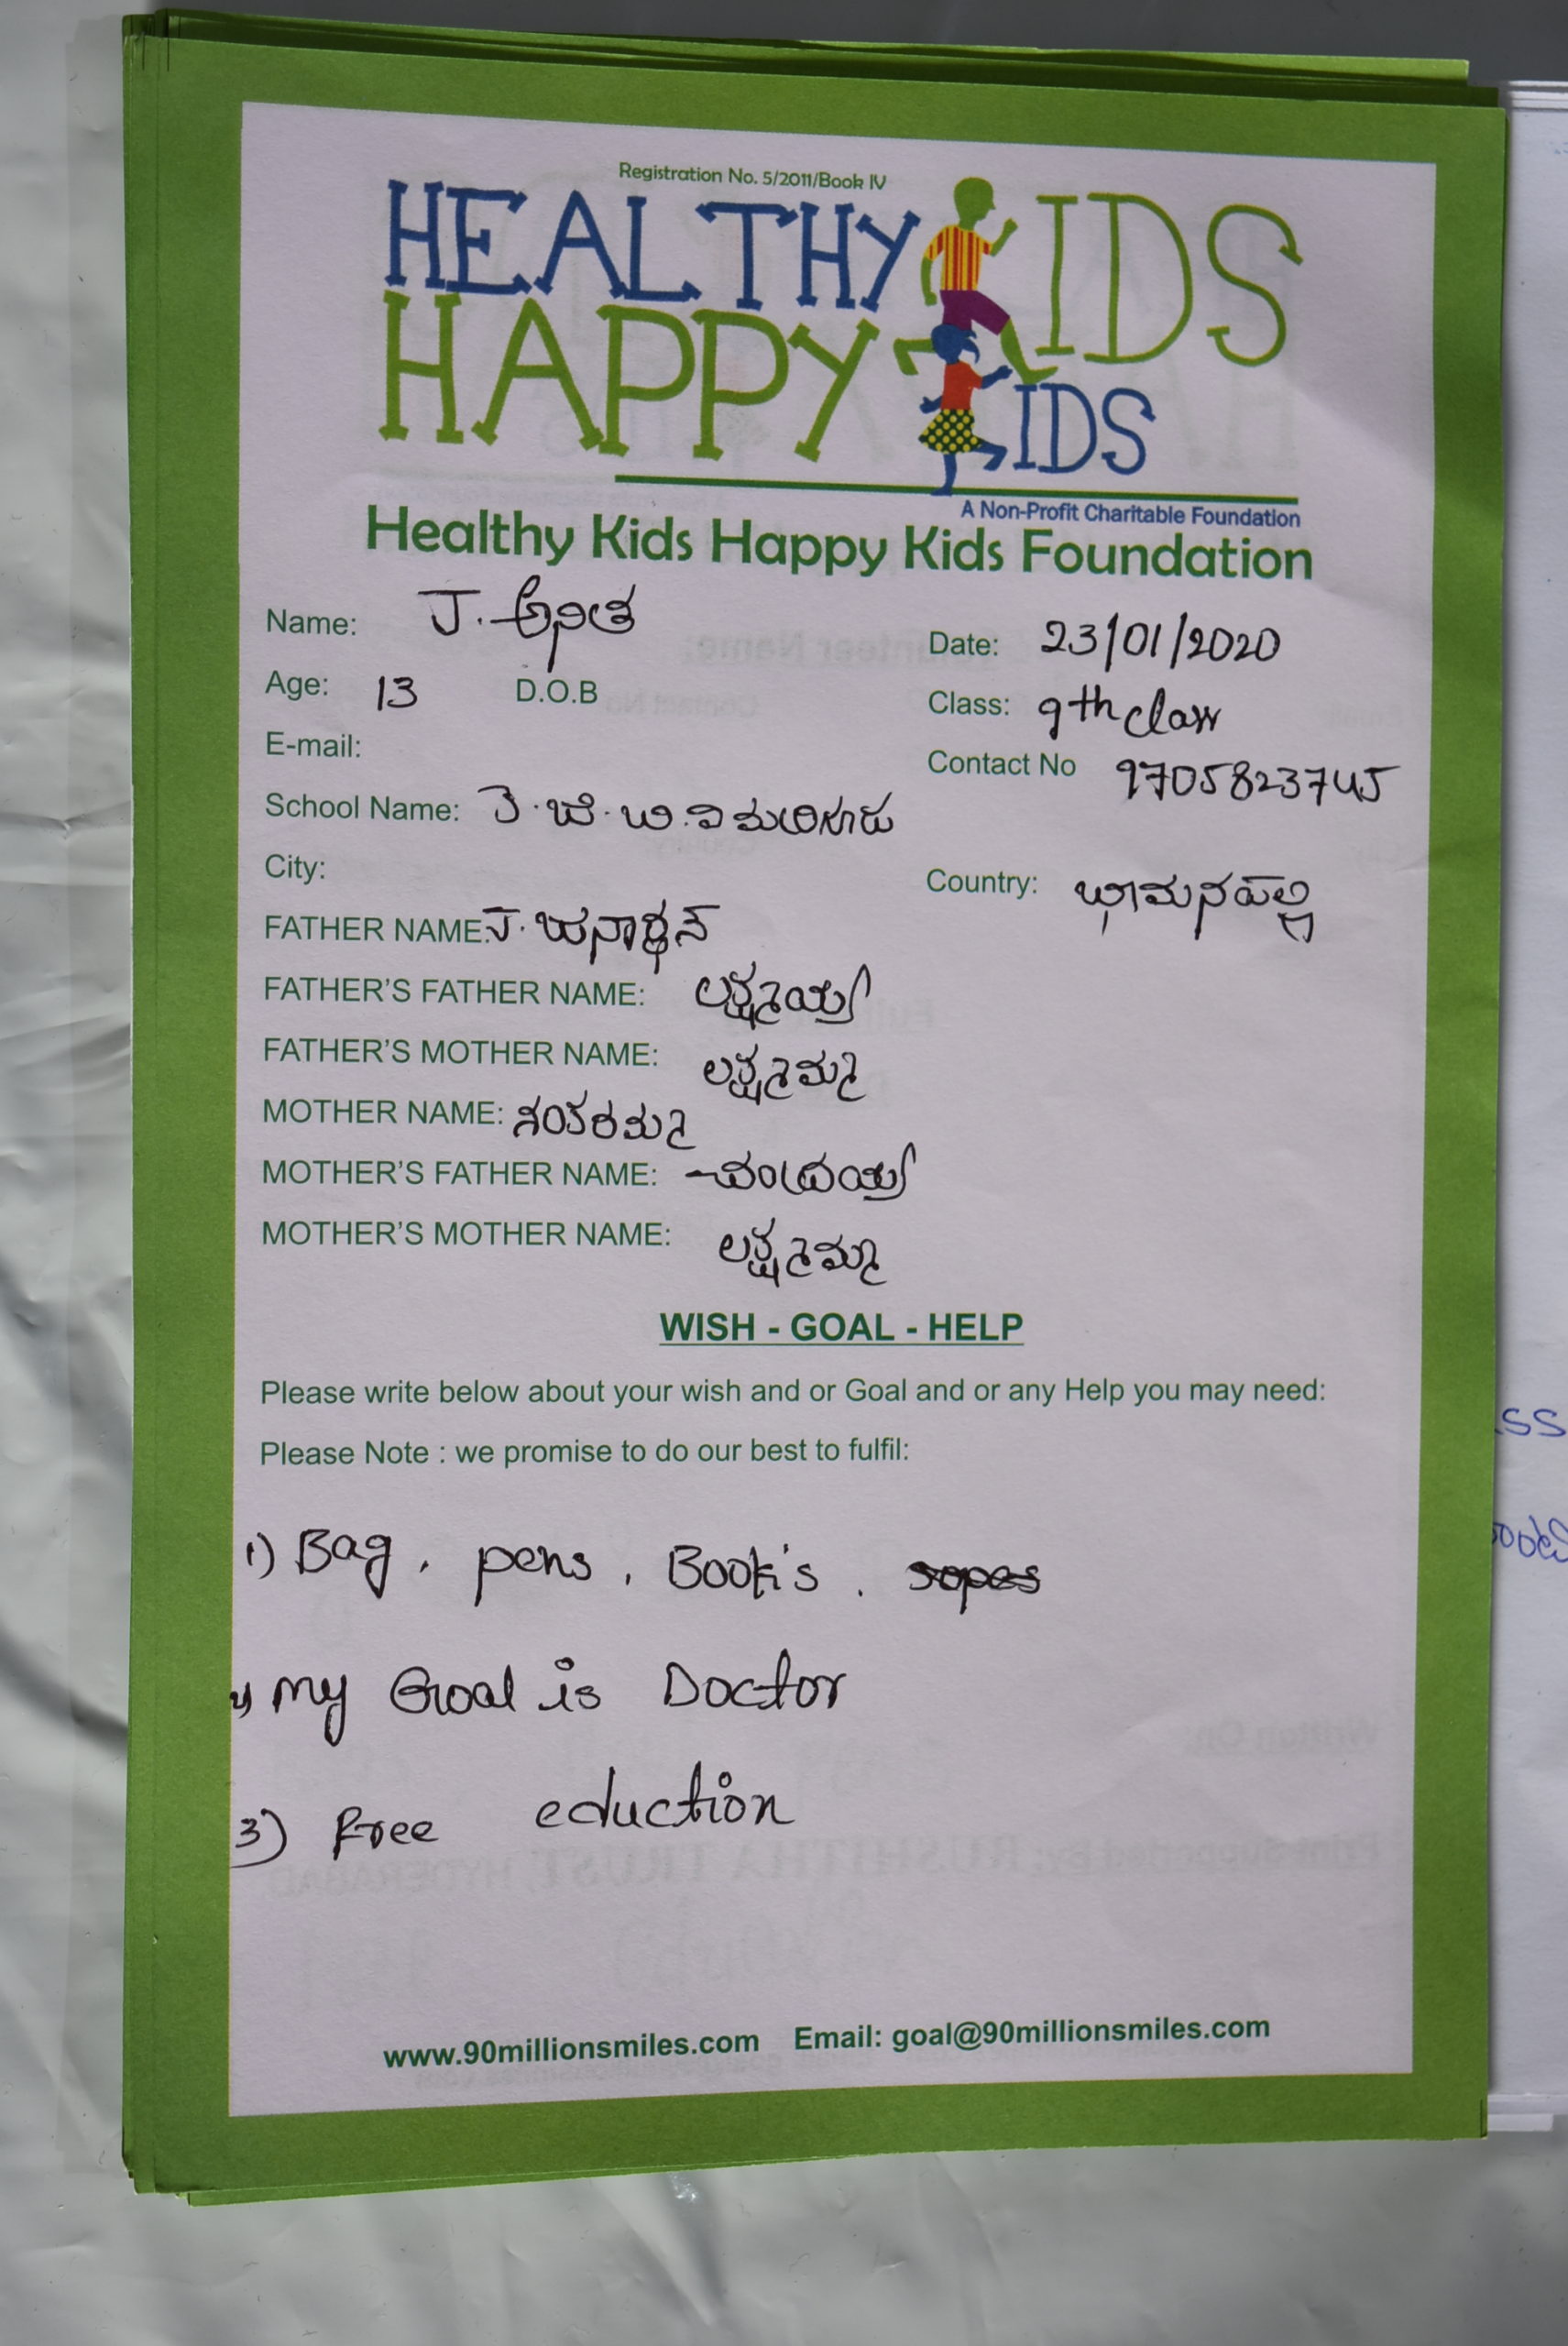 Registration No. 5/2011/Book IV
HEALTHY KIDS
HAPPY KIDS
A Non-Profit Charitable Foundation
Healthy Kids Happy Kids Foundation
Name: J. అనిత
Date: 23/01/2020
Age: 13 D.O.B
Class: 9th class
E-mail:
Contact No 9705823745
School Name:
City:
Country: భామనపల్లి
FATHER NAME: J. జనార్థన్
FATHER'S FATHER NAME: లక్ష్మయ్య
FATHER'S MOTHER NAME: లక్ష్మమ్మ
MOTHER NAME: శంకరమ్మ
MOTHER'S FATHER NAME: చంద్రయ్య
MOTHER'S MOTHER NAME: లక్ష్మమ్మ
WISH - GOAL - HELP
Please write below about your wish and or Goal and or any Help you may need:
Please Note : we promise to do our best to fulfil:
1) Bag, pens, Book's.
2) my Goal is Doctor
3) Free eduction
www.90millionsmiles.com Email: goal@90millionsmiles.com